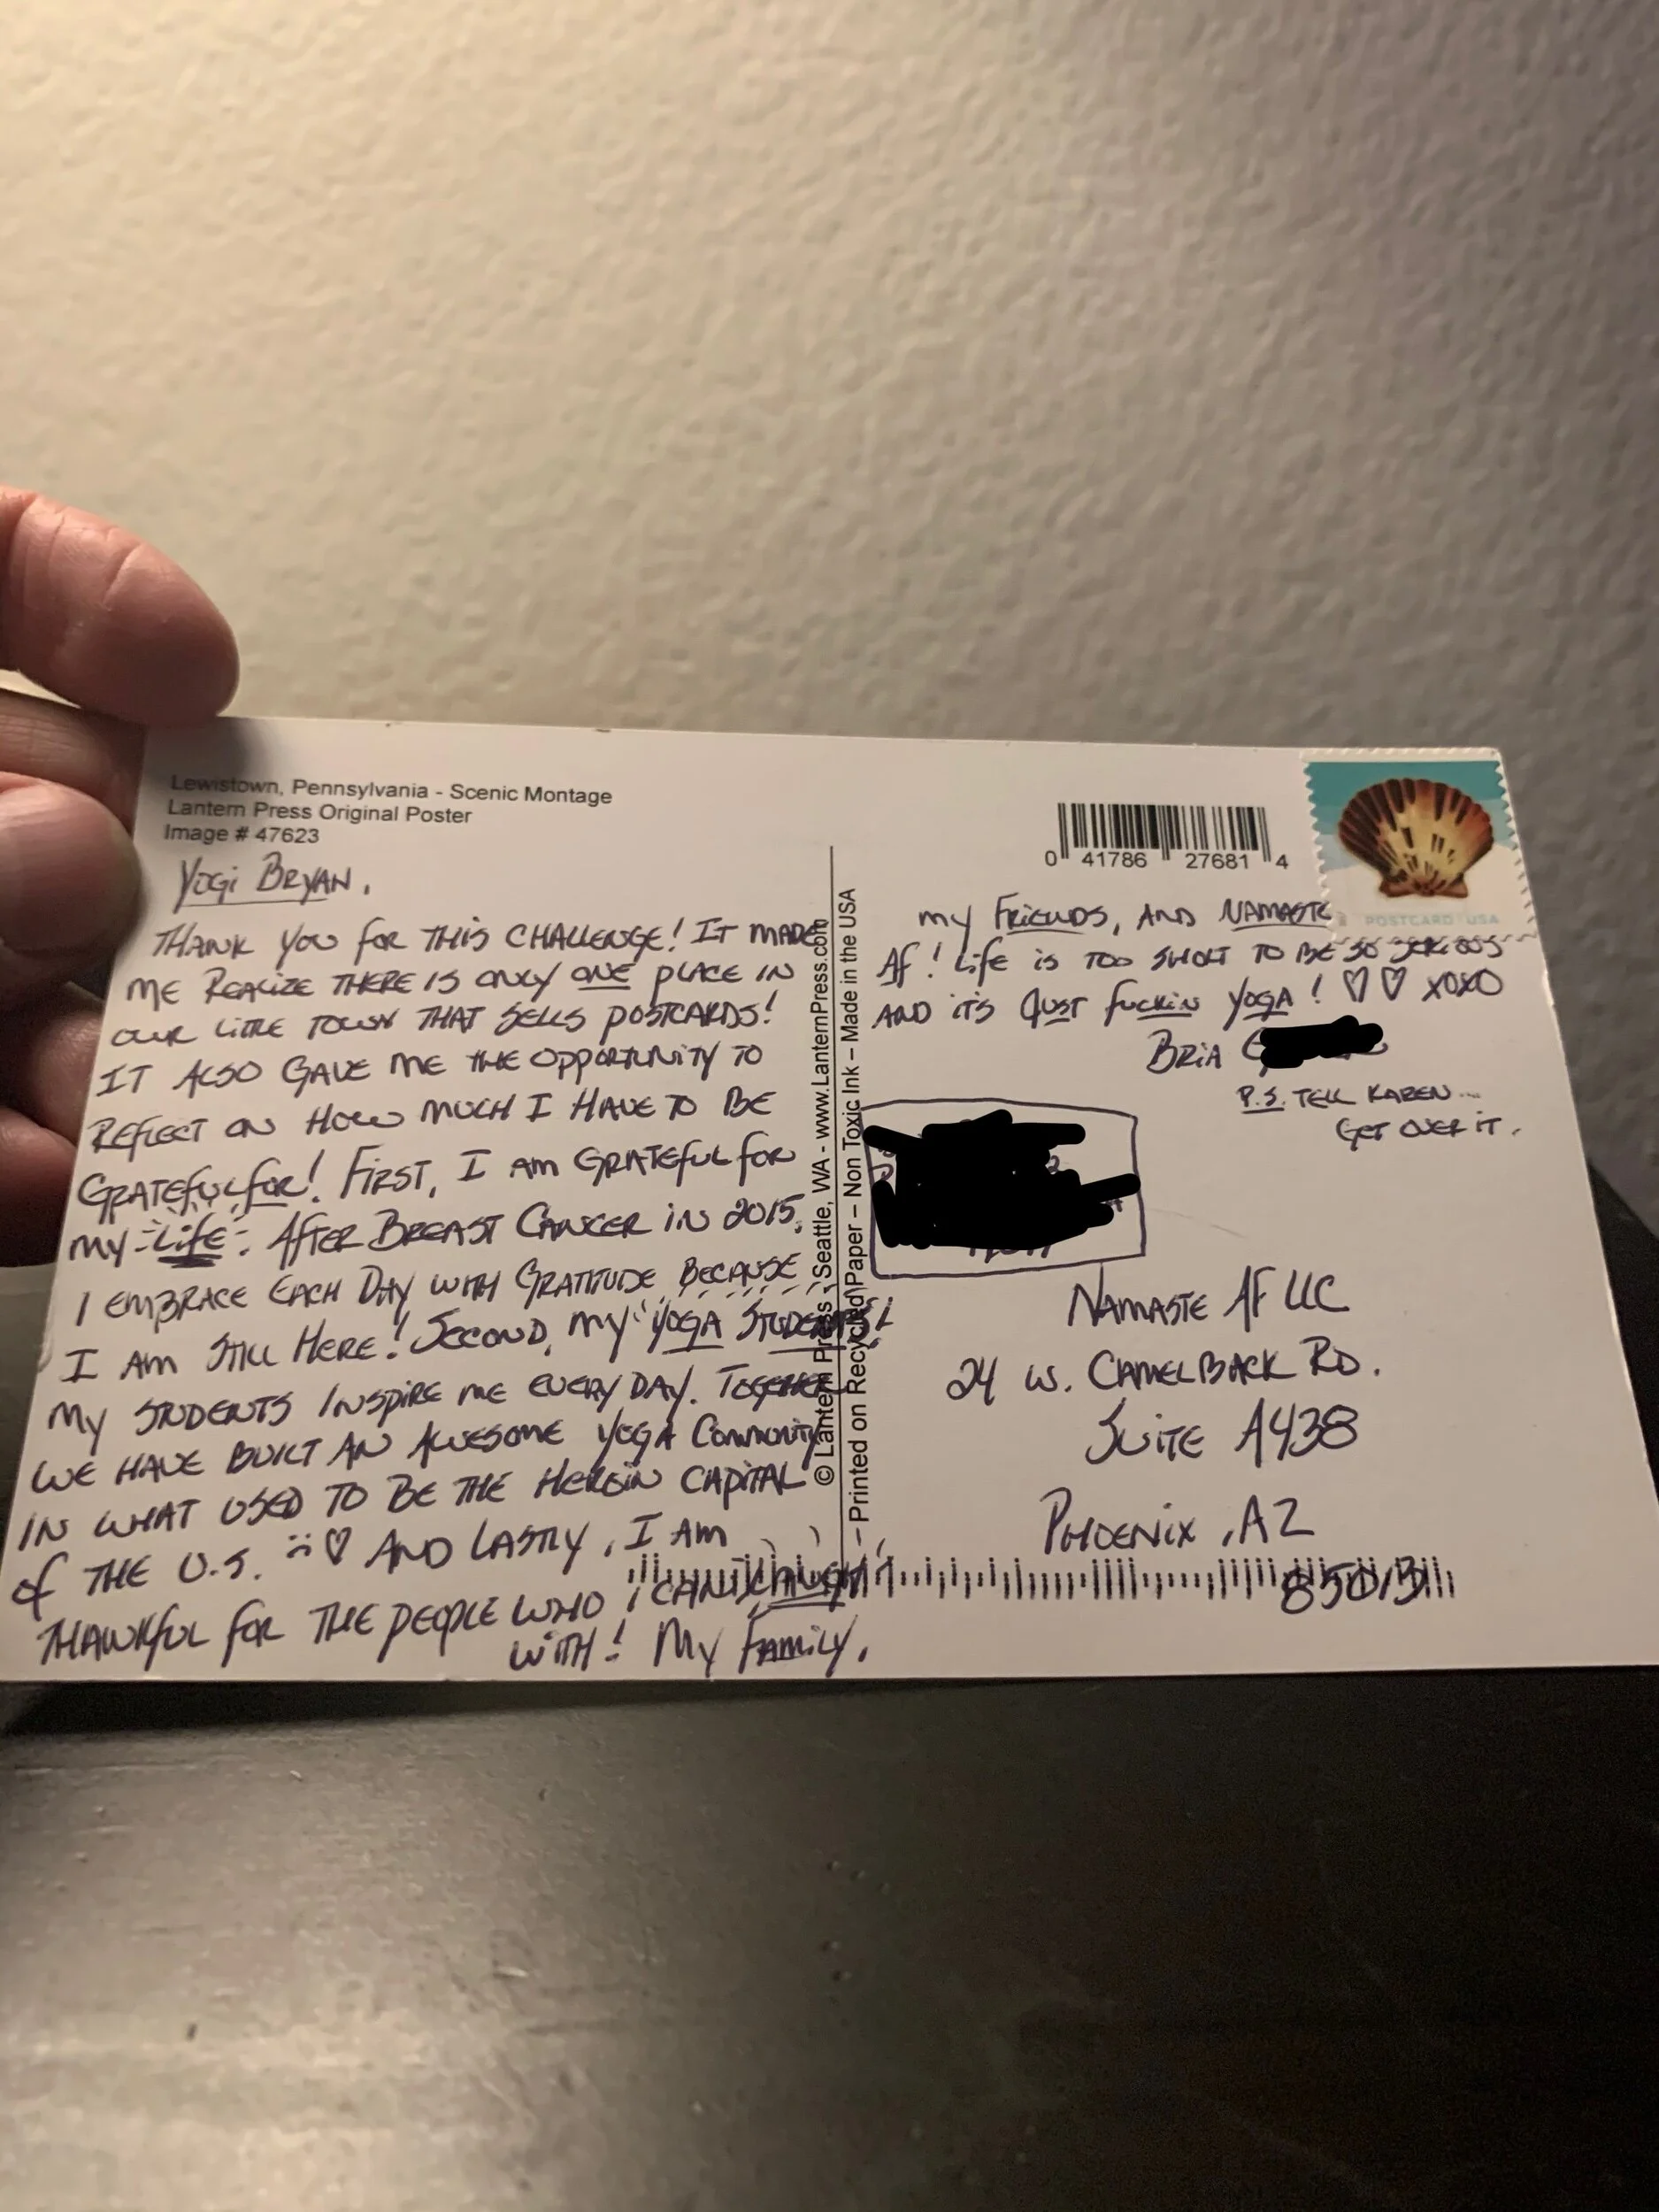 Lewistown, Pennsylvania - Scenic Montage
Lantern Press Original Poster
Image # 47623
YOGI BRYAN,
THANK YOU FOR THIS CHALLENGE! IT MADE
ME REALIZE THERE IS ONLY ONE PLACE IN
OUR LITTLE TOWN THAT SELLS POSTCARDS!
IT ALSO GAVE ME THE OPPORTUNITY TO
REFLECT ON HOW MUCH I HAVE TO BE
GRATEFUL FOR! FIRST, I AM GRATEFUL FOR
MY LIFE. AFTER BREAST CANCER IN 2015,
I EMBRACE EACH DAY WITH GRATITUDE BECAUSE
I AM STILL HERE! SECOND, MY YOGA STUDENTS!
MY STUDENTS INSPIRE ME EVERY DAY. TOGETHER
WE HAVE BUILT AN AWESOME YOGA COMMUNITY
IN WHAT USED TO BE THE HEROIN CAPITAL
OF THE U.S. ♡ AND LASTLY, I AM
THANKFUL FOR THE PEOPLE WHO I CAN LAUGH
WITH! MY FAMILY,
© Lantern Press - Seattle, WA - www.LanternPress.com
- Printed on Recycled Paper – Non Toxic Ink – Made in the USA
0 41786 27681 4
POSTCARD USA
MY FRIENDS, AND NAMASTE
AF! LIFE IS TOO SHORT TO BE SO SERIOUS
AND IT'S JUST FUCKIN YOGA! ♡ ♡ XOXO
BRIA
P.S. TELL KAREN...
GET OVER IT.
NAMASTE AF LLC
24 W. CAMELBACK RD.
SUITE A438
PHOENIX, AZ
85013